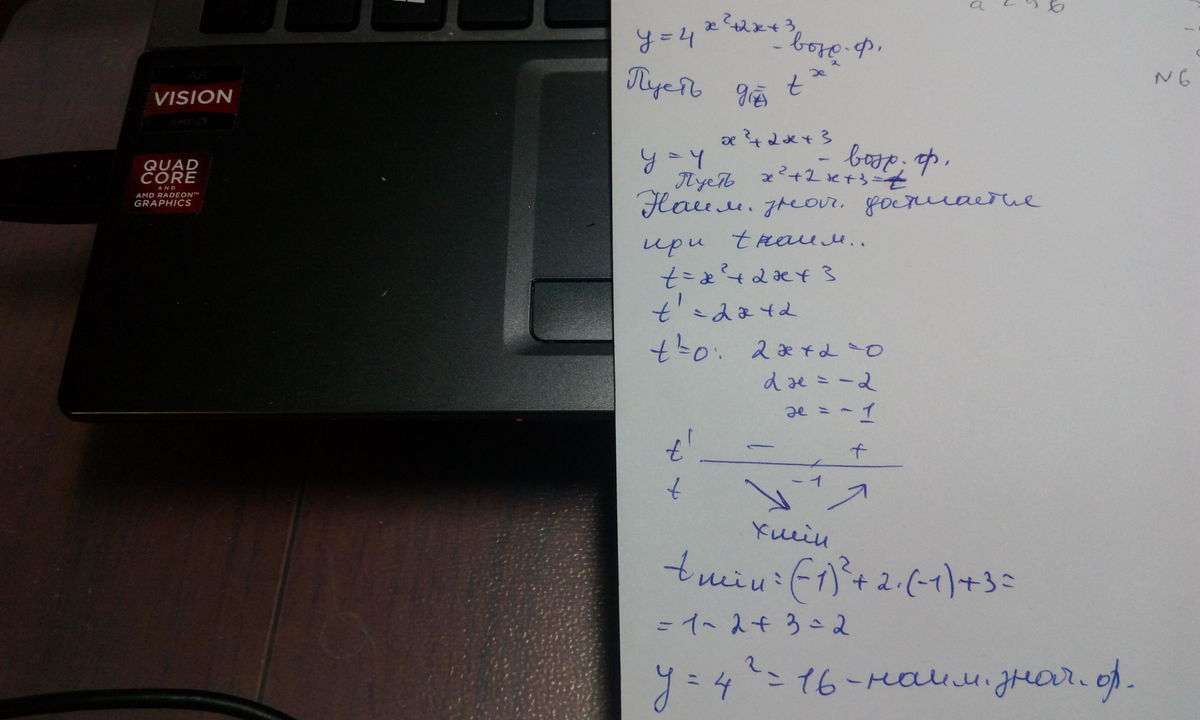 A8
VISION
AMD
QUAD
CORE
AND
AMD RADEON™
GRAPHICS
y = 4^{x²+2x+3} - возр. ф.
Пусть g(t) = t^{x²}
N6
y = 4^{x²+2x+3} - возр. ф.
Пусть x²+2x+3=t
Наим. знач. достигается
при t наим..
t = x²+2x+3
t' = 2x+2
t'=0: 2x+2=0
2x = -2
x = -1
t' - +
-1
t
xmin
tmin = (-1)²+2·(-1)+3=
= 1-2+3=2
y = 4² = 16 - наим. знач. ф.